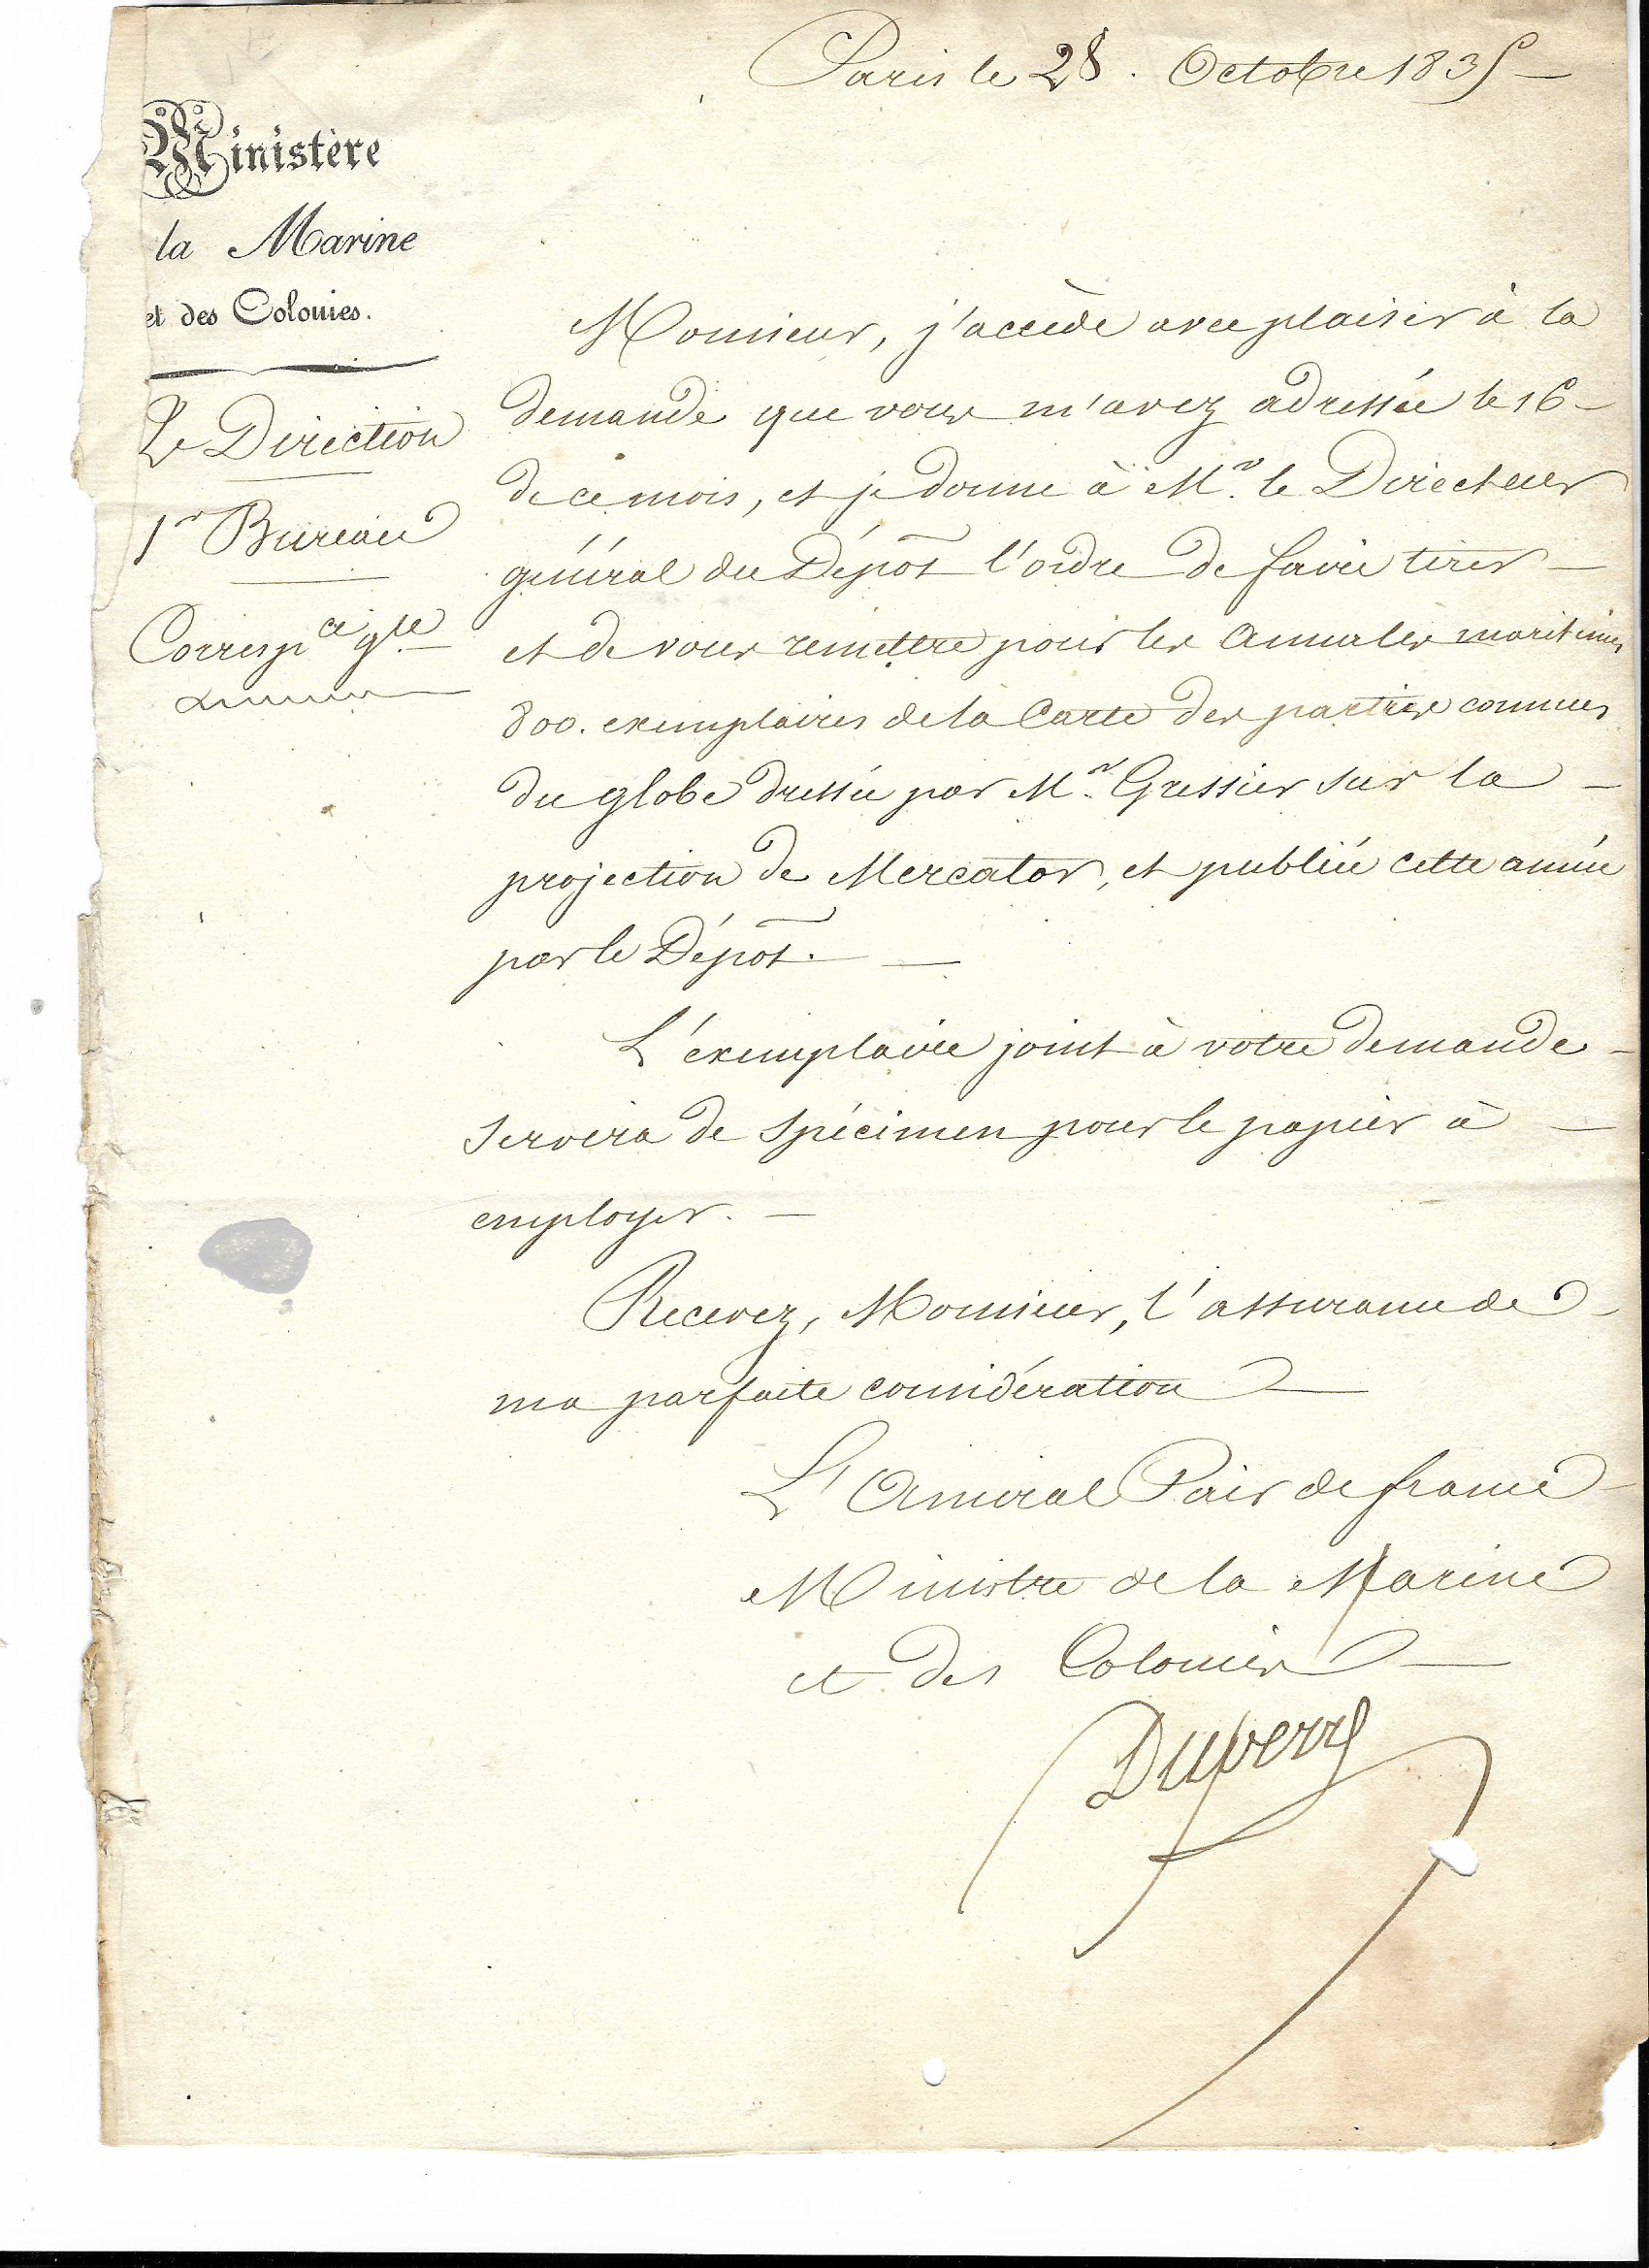 Paris le 28. Octobre 1835
Ministère
la Marine
et des Colonies.
Direction
1er Bureau
Correspce gle
Monsieur, j'accède avec plaisir à la
demande que vous m'avez adressée le 16
de ce mois, et je donne à Mr. le Directeur
général du Dépôt l'ordre de faire tirer
et de vous remettre pour les Annales maritimes
800. exemplaires de la Carte des parties connues
du globe dressée par Mr. Gressier sur la
projection de Mercator, et publiée cette année
par le Dépôt.
L'exemplaire joint à votre demande
servira de spécimen pour le papier à
employer.
Recevez, Monsieur, l'assurance de
ma parfaite considération
L'Amiral Pair de france
Ministre de la Marine
et des Colonies
Duperré